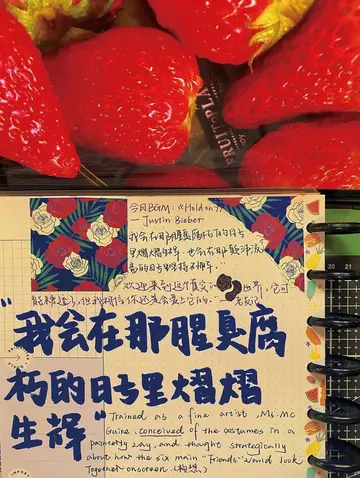 FRUITOPLA
今日BGM:《Hold on》
— Justin Bieber
我会在那腥臭腐朽的日子
里熠熠生辉，也会在那
欢迎来到这个真实的世界，它可
能糟透了，但我相信你还是会爱上它的。
"我会在那腥臭腐
朽的日子里熠熠
生辉"
Trained as a fine artist, Ms. Mc
Guire conceived of the costumes in a
painterly way, and thought strategically
about how the six main "Friends" would look
together onscreen. (构想)